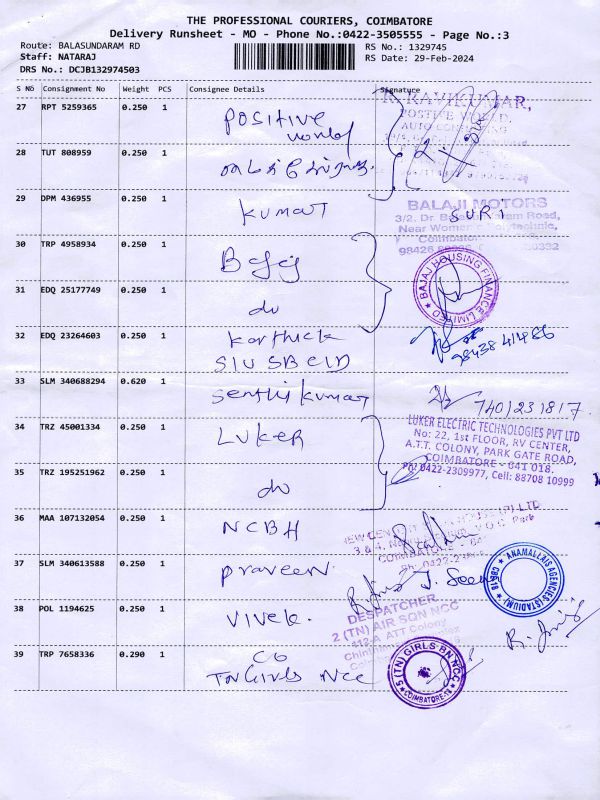 THE PROFESSIONAL COURIERS, COIMBATORE
Delivery Runsheet - MO - Phone No.:0422-3505555 - Page No.:3
Route: BALASUNDARAM RD
RS No.: 1329745
Staff: NATARAJ
RS Date: 29-Feb-2024
DRS No.: DCJB132974503
S NO Consignment No Weight PCS Consignee Details Signature
27 RPT 5259365 0.250 1 Positive world
R. RAVIKUMAR,
28 TUT 808959 0.250 1
29 DPM 436955 0.250 1 Kumar
BALAJI MOTORS
SURI
Near Women's Polytechnic,
30 TRP 4958934 0.250 1 Bajaj
BAJAJ HOUSING FINANCE LIMITED
31 EDQ 25177749 0.250 1 do
32 EDQ 23264603 0.250 1 Karthick
SIU SB CID
98438 41486
33 SLM 340688294 0.620 1 Senthil Kumar
7401231817
34 TRZ 45001334 0.250 1 LUKER
LUKER ELECTRIC TECHNOLOGIES PVT LTD
No: 22, 1st FLOOR, RV CENTER,
A.T.T. COLONY, PARK GATE ROAD,
COIMBATORE - 641 018.
Ph: 0422-2309977, Cell: 88708 10999
35 TRZ 195251962 0.250 1 do
36 MAA 107132054 0.250 1 NCBH
37 SLM 340613588 0.250 1 Praveen
ANAMALLAIS AGENCIES (STADIUM) CBE-18
38 POL 1194625 0.250 1 Vivek.
DESPATCHER
2 (TN) AIR SQN NCC
112-A ATT Colony
39 TRP 7658336 0.290 1 CO
TN Girls NCC
5 (TN) GIRLS BN NCC COIMBATORE-18